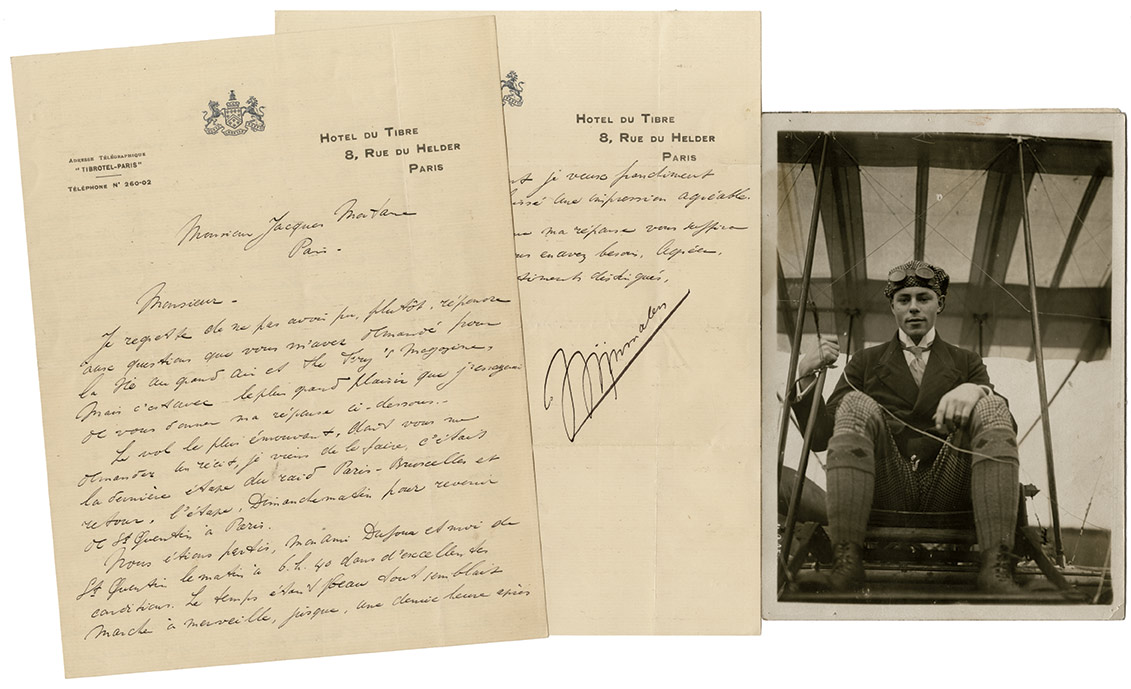 ADRESSE TÉLÉGRAPHIQUE
"TIBROTEL-PARIS"
TÉLÉPHONE Nº 260-02
HOTEL DU TIBRE
8, RUE DU HELDER
PARIS
Monsieur Jacques Mortane
Paris -
Monsieur -
Je regrette de ne pas avoir pu, plutôt, répondre
aux questions que vous m'avez demandé pour
la Vie au grand air et the Fry's Magazine,
mais c'est avec le plus grand plaisir que j'essayerai
de vous donner ma réponse ci-dessous. -
Le vol le plus émouvant, dont vous me
demandez un récit, je viens de le faire, c'était
la dernière étape du raid Paris-Bruxelles et
retour, l'étape, Dimanche matin pour revenir
de St Quentin à Paris.
Nous étions partis, mon ami Dufour et moi de
St Quentin le matin à 6.h.40 dans d'excellentes
conditions. Le temps étant beau tout semblait
marche à merveille, jusque, une demie heure après
HOTEL DU TIBRE
8, RUE DU HELDER
PARIS
je veux franchement
issé une impression agréable.
ma réponse vous suffira
ous en avez besoin, Agréez,
timents distingués,